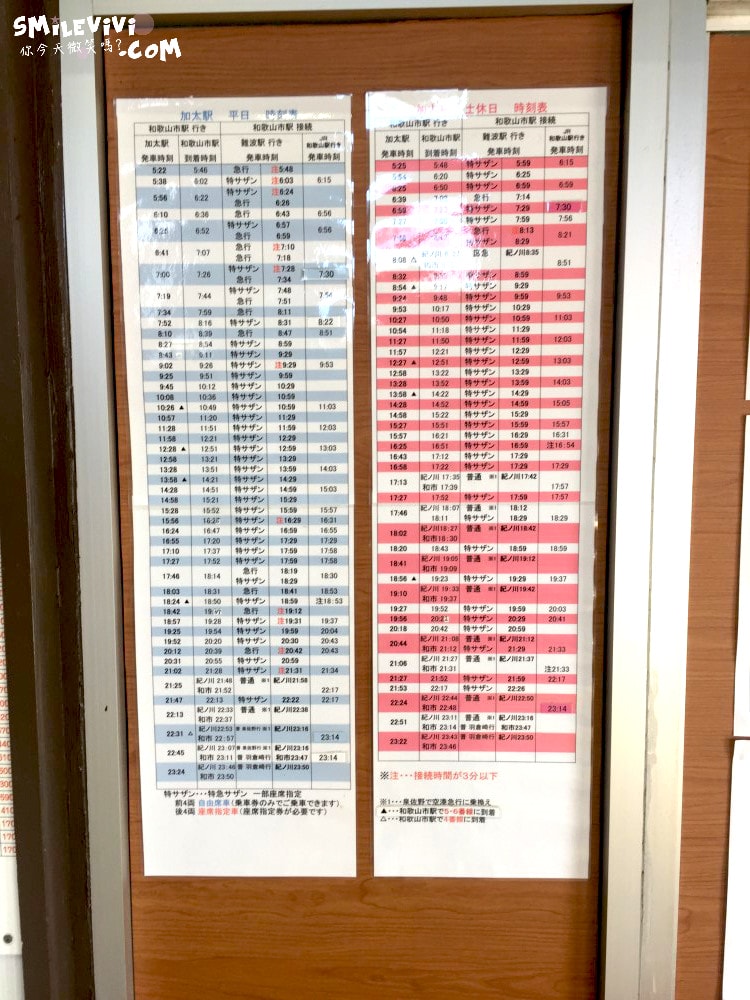 SMiLEViVi
你今天微笑嗎?
.COM
加太駅 平日 時刻表
和歌山市駅 行き 和歌山市駅 接続
加太駅 和歌山市駅 難波駅 行き JR和歌山駅行き
発車時刻 到着時刻 発車時刻 発車時刻
5:22 5:46 急行 注5:48
5:38 6:02 特サザン 注6:03 6:15
5:56 6:22 特サザン 注6:24
急行 6:26
6:10 6:36 急行 6:43 6:56
6:52 特サザン 6:57 6:56
急行 6:59
6:41 7:07 急行 注7:10
急行 7:18
7:00 7:26 特サザン 注7:28 7:30
急行 7:34
7:19 7:44 特サザン 7:48 7:54
急行 7:51
7:34 7:59 急行 8:11
7:52 8:16 特サザン 8:31 8:22
8:10 8:39 急行 8:47 8:51
8:27 8:54 特サザン 8:59
8:43 9:11 特サザン 9:29
9:02 9:26 特サザン 注9:29 9:53
9:25 9:51 特サザン 9:59
9:45 10:12 特サザン 10:29
10:08 10:36 特サザン 10:59
10:26 ▲ 10:49 特サザン 10:59 11:03
10:57 11:20 特サザン 11:29
11:28 11:51 特サザン 11:59 12:03
11:58 12:21 特サザン 12:29
12:28 ▲ 12:51 特サザン 12:59 13:03
12:58 13:21 特サザン 13:29
13:28 13:51 特サザン 13:59 14:03
13:58 ▲ 14:21 特サザン 14:29
14:28 14:51 特サザン 14:59 15:03
14:58 15:21 特サザン 15:29
15:28 15:52 特サザン 15:59 15:57
15:56 16:26 特サザン 注16:29 16:31
16:24 16:47 特サザン 16:59 16:55
16:55 17:20 特サザン 17:29 17:29
17:10 17:37 特サザン 17:59 17:58
17:27 17:52 特サザン 17:59 17:58
17:46 18:14 急行 18:19 18:30
特サザン 18:29
18:03 18:31 急行 18:41 18:53
18:24 ▲ 18:50 特サザン 18:59 注18:53
18:42 急行 注19:12
18:57 19:28 特サザン 注19:31 19:37
19:25 19:54 特サザン 19:59 20:04
19:52 20:20 特サザン 20:30 20:43
20:12 20:39 急行 注20:42 20:43
20:31 20:55 特サザン 20:59
21:02 21:28 特サザン 注21:31 21:34
21:25 紀ノ川 21:46 普通 ※1 紀ノ川21:58 22:17
和市 21:52
21:47 22:13 特サザン 22:22 22:17
22:13 紀ノ川 22:33 普通 ※1 紀ノ川22:38
和市 22:37
22:31 △ 紀ノ川22:53 紀ノ川23:16 23:14
和市 22:57
22:45 紀ノ川 23:07 紀ノ川23:16 23:14
和市 23:11 普 羽倉崎行 和市23:47
23:24 紀ノ川 23:46 普 羽倉崎行 紀ノ川23:50
和市 23:50
特サザン・・・特急サザン 一部座席指定
前4両 自由席車(乗車券のみでご乗車できます)
後4両 座席指定車(座席指定券が必要です)
土休日 時刻表
和歌山市駅 行き 和歌山市駅 接続
加太駅 和歌山市駅 難波駅 行き JR和歌山駅行き
発車時刻 到着時刻 発車時刻 発車時刻
5:25 5:48 特サザン 5:59 6:15
6:20 特サザン 6:25
6:25 6:50 特サザン 6:59 6:59
6:39 急行 7:14
6:59 特サザン 7:29 7:30
特サザン 7:59 7:56
急行 8:13 8:21
特サザン 8:29
8:08 △ 区急 紀ノ川8:35 8:51
8:32 特サザン 8:59
8:54 ▲ 特サザン 9:29
9:24 9:48 特サザン 9:59 9:53
9:53 10:17 特サザン 10:29
10:27 10:50 特サザン 10:59 11:03
10:54 11:18 特サザン 11:29
11:27 11:50 特サザン 11:59 12:03
11:57 12:21 特サザン 12:29
12:27 ▲ 12:51 特サザン 12:59 13:03
12:58 13:22 特サザン 13:29
13:28 13:52 特サザン 13:59 14:03
13:58 ▲ 14:22 特サザン 14:29
14:28 14:52 特サザン 14:59 15:05
14:58 15:22 特サザン 15:29
15:27 15:51 特サザン 15:59 15:57
15:57 16:21 特サザン 16:29 16:31
16:25 16:51 特サザン 16:59 注16:54
16:43 17:12 特サザン 17:29
16:58 17:22 特サザン 17:29 17:29
17:13 紀ノ川 17:35 普通 ※1 紀ノ川17:42 17:57
和市 17:39
17:27 17:52 特サザン 17:59 17:57
17:46 紀ノ川 18:07 普通 ※1 18:12 18:29
18:11 特サザン 18:29
18:02 紀ノ川18:27 普通 ※1 紀ノ川18:42
和市18:30
18:20 18:43 特サザン 18:59 18:59
18:41 紀ノ川 19:05 普通 ※1 紀ノ川19:12
和市 19:09
18:56 ▲ 19:23 特サザン 19:29 19:37
19:10 紀ノ川 19:33 普通 ※1 紀ノ川19:42
和市 19:37
19:27 19:52 特サザン 19:59 20:03
19:56 特サザン 20:29 20:41
20:18 20:42 特サザン 20:59
20:44 紀ノ川 21:08 普通 ※1 紀ノ川21:12 21:33
和市 21:12 特サザン 21:29
21:06 紀ノ川 21:27 普通 ※1 紀ノ川21:37 注21:33
和市 21:31
21:27 21:52 特サザン 21:59 22:17
21:53 22:17 特サザン 22:26
22:24 紀ノ川 22:44 普通 ※1 紀ノ川22:50 23:14
和市 22:48
22:51 紀ノ川 23:11 普通 ※1 紀ノ川23:16
和市 23:14 普 羽倉崎行 和市23:47
23:22 紀ノ川 23:43 普 羽倉崎行 紀ノ川23:50
和市 23:46
※注・・・接続時間が3分以下
※1・・・泉佐野で空港急行に乗換え
▲・・・和歌山市駅で5・6番線に到着
△・・・和歌山市駅で4番線に到着